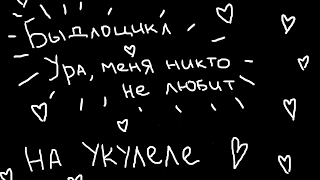 Быдлоцикл
Ура, меня никто
не любит
на укулеле